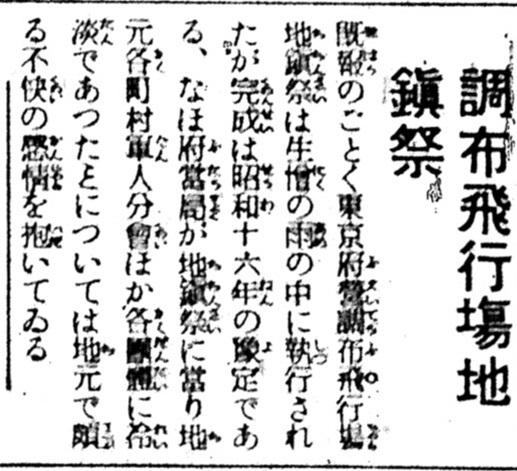 調布飛行塲地
鎭祭
既報のごとく東京府營調布飛行塲
地鎭祭は生憎の雨の中に執行され
たが完成は昭和十六年の豫定であ
る、なほ府當局が地鎭祭に當り地
元各町村軍人分會ほか各團體に冷
淡であつたことについては地元で頗
る不快の感情を抱いてゐる